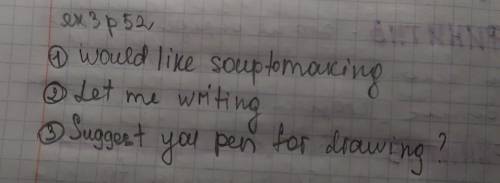 ex3 p52
① Would like souptomaking
② Let me writing
③ Suggest you pen for drawing?